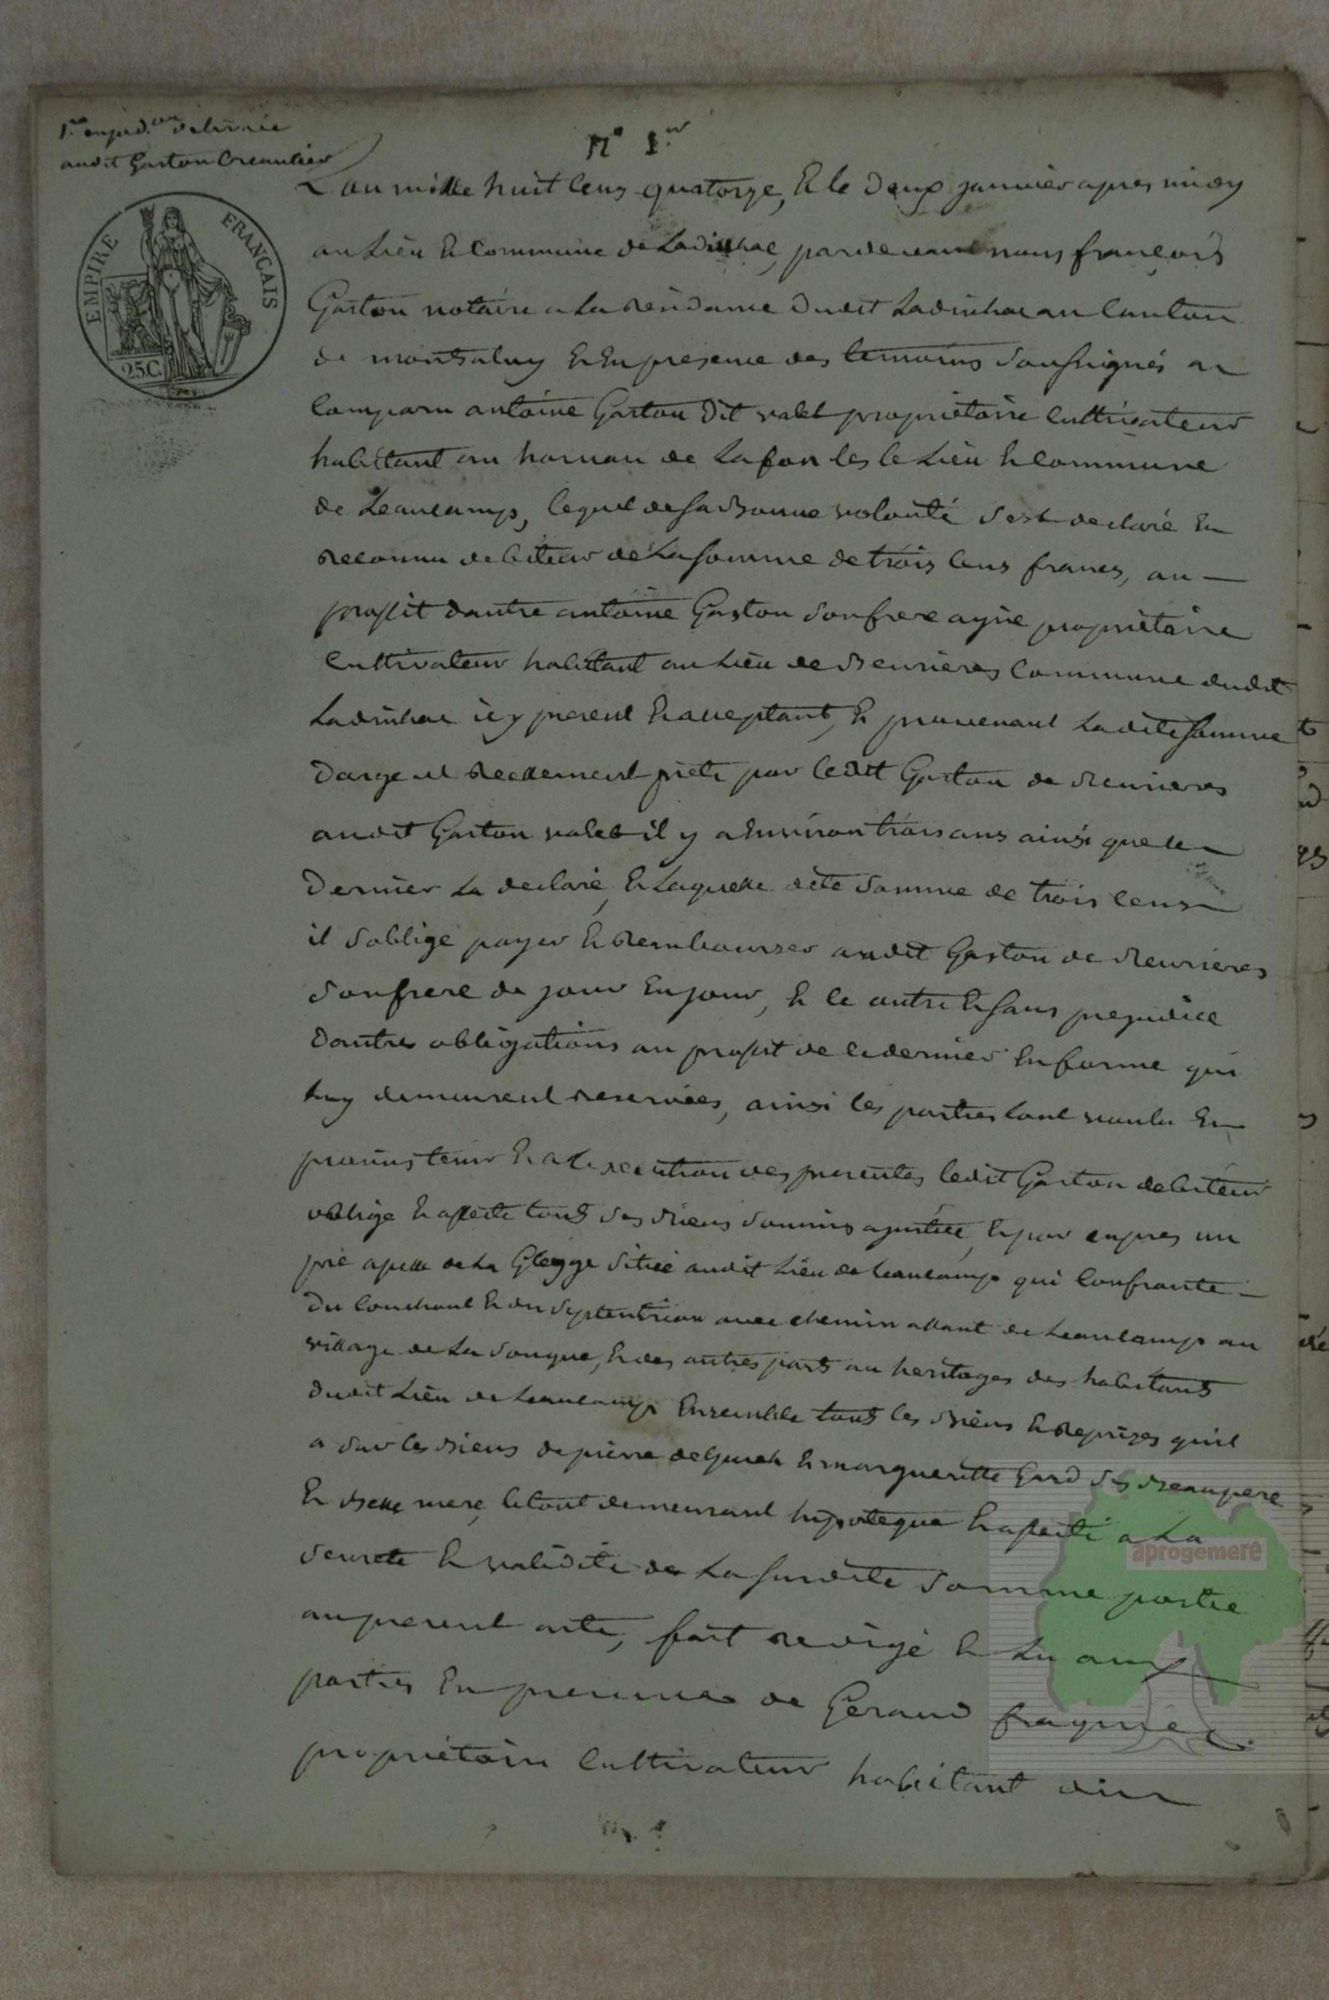 1.re exped.on delivrée
audit Gaston Creancier
EMPIRE FRANÇAIS
25C.
N° 1.er
L'an mille huit cens quatorze, et le deux janvier apres midy
au Lieu et commune de Ladinhac, pardevant nous françois
Gaston notaire a la residance dudit Ladinhac au canton
de montsalvy et en presence des temoins soussignés a
comparu antoine Gaston dit valet propriétaire cultivateur
habitant au hameau de Lafon les le Lieu et commune
de Leaucamp, lequel de sa bonne volonté s'est declaré et
reconnu debiteur de la somme de trois cens francs, au
profit d'autre antoine Gaston son frere ayné propriétaire
cultivateur habitant au Lieu de commune dudit
Ladinhac icy present et acceptant, et provenant Ladite somme
d'argent reellement preté par ledit Gaston de
audit Gaston valet il y a environ trois ans ainsi que ce
dernier la declaré, et laquelle dite somme de trois cens
il s'oblige payer et rembourser audit Gaston de
son frere de jour en jour, et ce outre et sans prejudice
d'autres obligations au profit de ce dernier en forme qui
luy demeurent reservées, ainsi les parties l'ont voulu et
promis tenir et a l'execution des presentes ledit Gaston debiteur
oblige et affecte tous ses biens soumis a justice, et par expres un
pré apellé de La situé audit Lieu de Leaucamp qui confronte
du couchant et du septentrion avec chemin allant de Leaucamp au
village de La et des autres parts au heritages des habitants
dudit Lieu de Leaucamp Ensemble tous les biens et reprizes qu'il
a sur les biens de pierre et marguerite ses beaupere
et belle mere, le tout demeurant hypoteque et affecté a La
seurete et validité de La susdite somme portée
au present acte, fait redigé et lu aux
parties en presence de Geraud
propriétaire cultivateur habitant
aprogemere